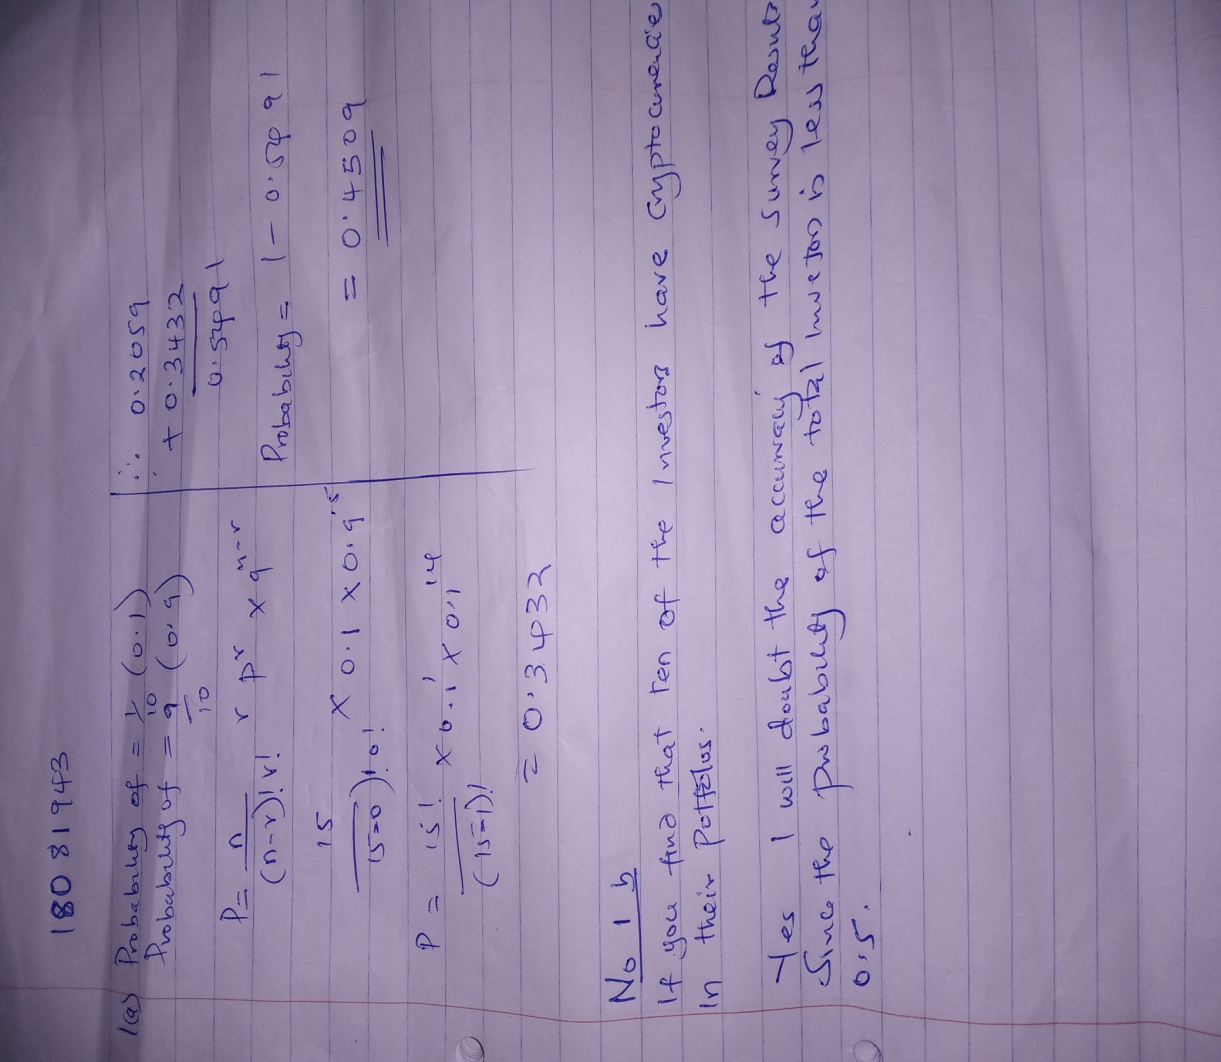 18081943
1(a) Probability of = 1/10 (0.1)
Probability of = 9/10 (0.9)
P = n / (n-r)! r! r p^r x q^n-r
15 / (15-0)! 0! x 0.1 x 0.9^15
P = 15! / (15-1)! x 0.1^1 x 0.1^14
= 0.3432
∴ 0.2059
+ 0.3432
0.5491
Probability = 1 - 0.5491
= 0.4509
No 1 b
If you find that Ten of the Investors have Cryptocurrencie
In their Potfolus.
Yes I will doubt the accuracy of the Survey Results
Since the probability of the total Investors is less than
0.5.